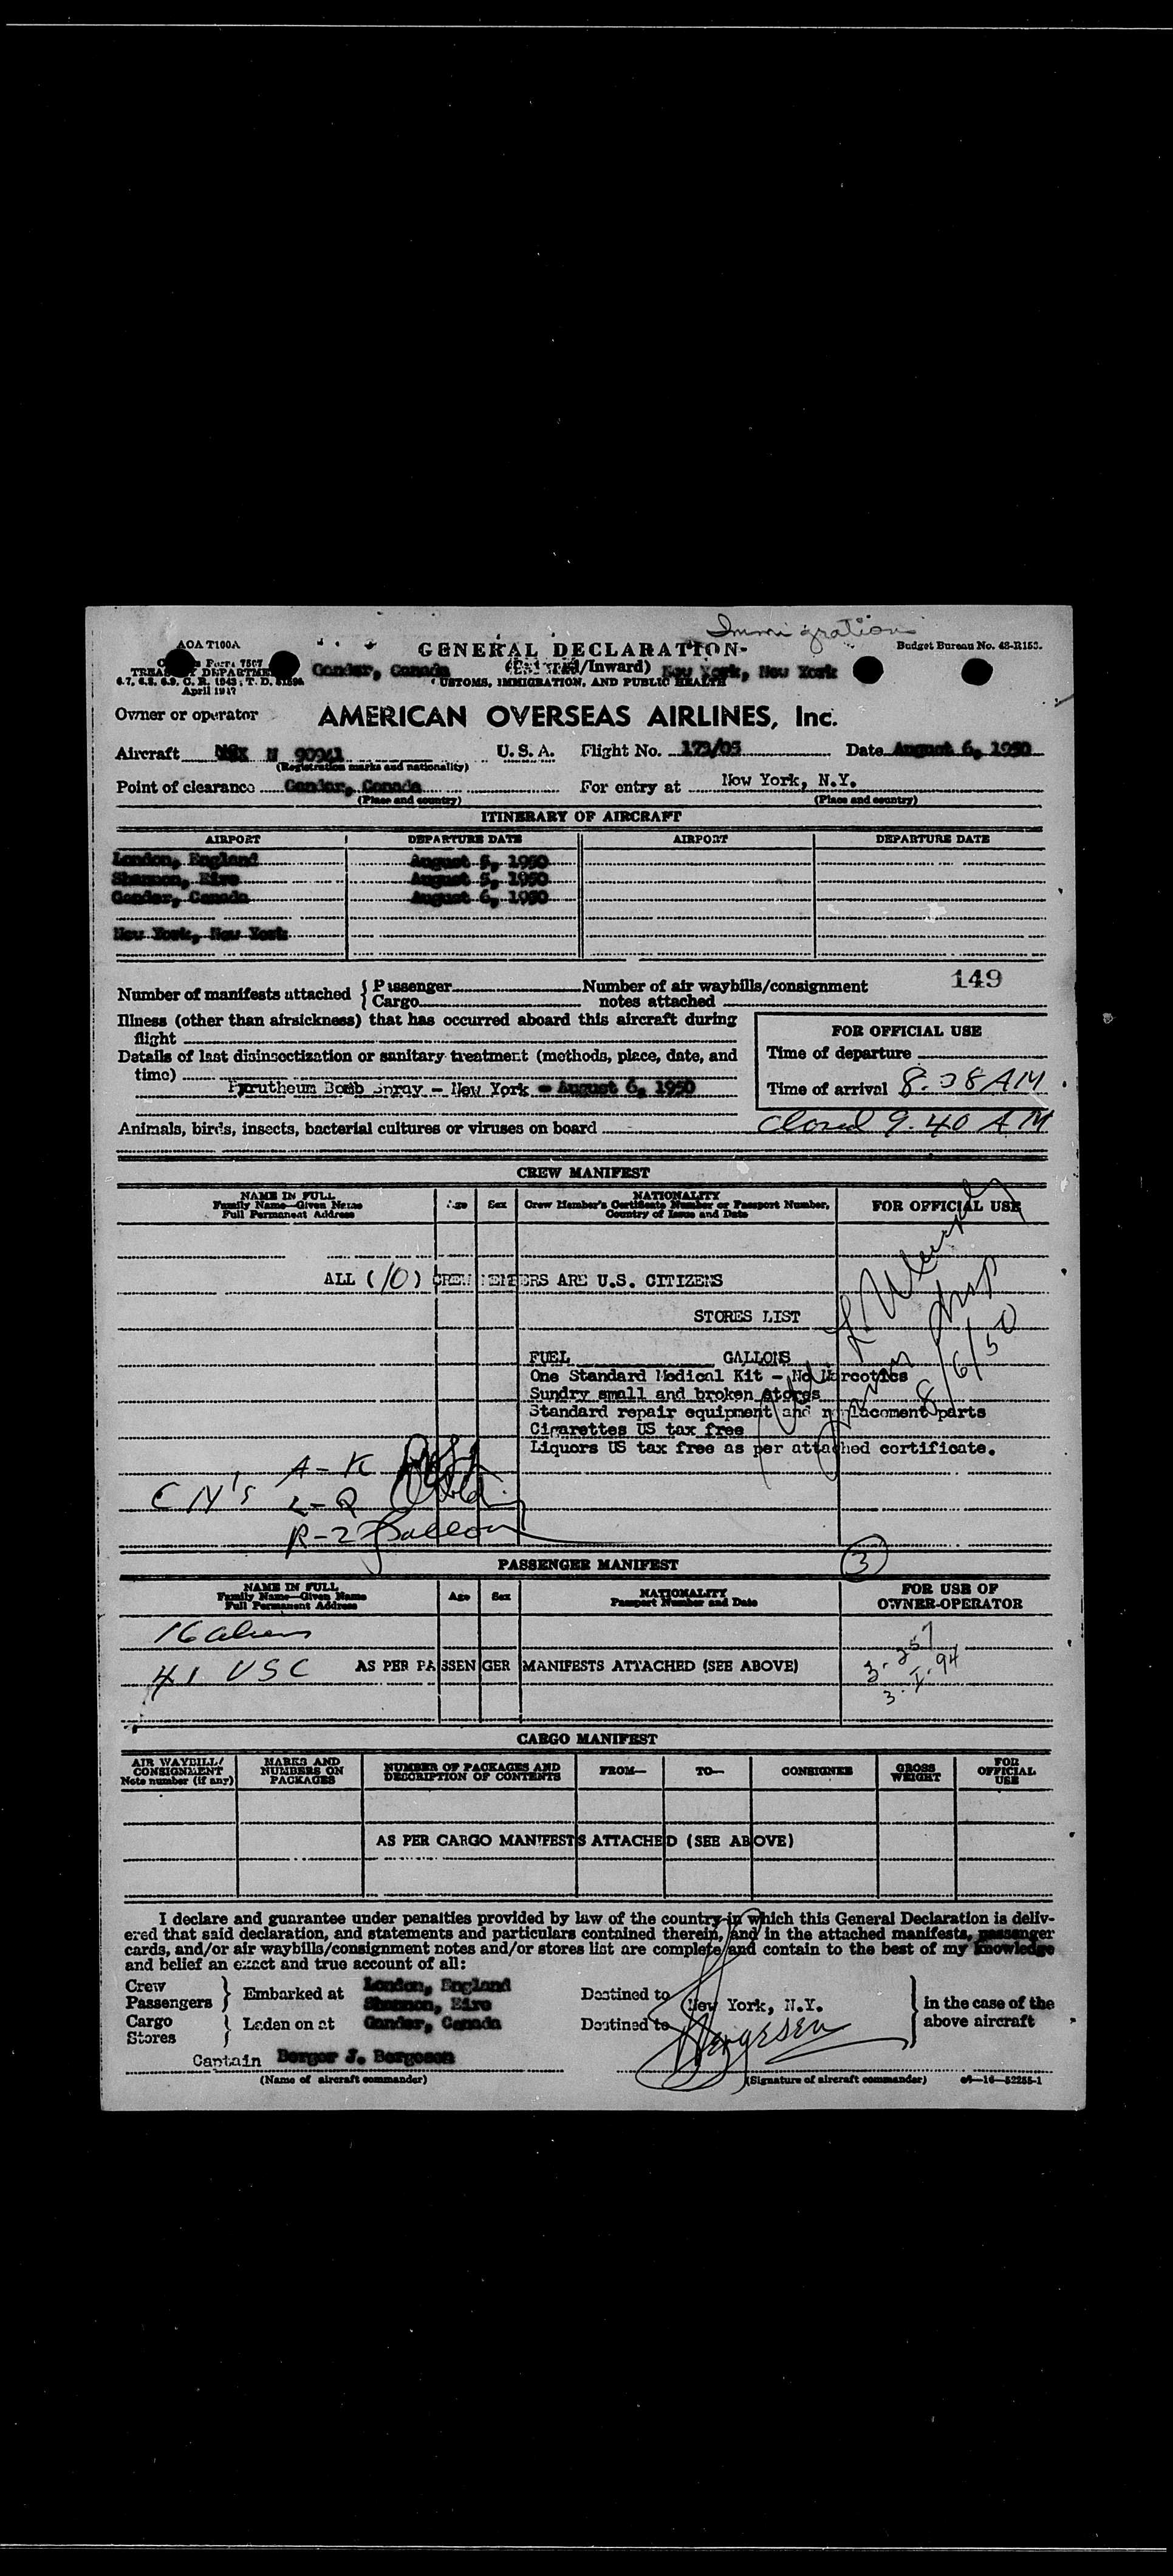 Immigration
AOA T100A
GENERAL DECLARATION
Budget Bureau No. 48-R153.
Form 7507
TREASURY DEPARTMENT
Gander, Canada
(Outward/Inward)
New York, New York
6.7, 6.8, 6.9, C. R. 1943; T. D.
CUSTOMS, IMMIGRATION, AND PUBLIC HEALTH
April 1947
Owner or operator AMERICAN OVERSEAS AIRLINES, Inc.
Aircraft N 90941 U. S. A. Flight No. Date August 6, 1950
(Registration marks and nationality)
Point of clearance Gander, Canada For entry at New York, N.Y.
(Place and country) (Place and country)
ITINERARY OF AIRCRAFT
AIRPORT DEPARTURE DATE AIRPORT DEPARTURE DATE
London, England August 5, 1950
Shannon, Eire August 5, 1950
Gander, Canada August 6, 1950
New York, New York
149
Number of manifests attached { Passenger Number of air waybills/consignment
Cargo notes attached
Illness (other than airsickness) that has occurred aboard this aircraft during
flight
FOR OFFICIAL USE
Details of last disinsectization or sanitary treatment (methods, place, date, and
time)
Time of departure
Pyrutheum Bomb Spray - New York - August 6, 1950
Time of arrival 8.38 AM
Animals, birds, insects, bacterial cultures or viruses on board
Closed 9.40 AM
CREW MANIFEST
NAME IN FULL
Family Name—Given Name
Full Permanent Address
Age Sex
NATIONALITY
Crew Member's Certificate Number or Passport Number,
Country of Issue and Date
FOR OFFICIAL USE
ALL (10) CREW MEMBERS ARE U.S. CITIZENS
STORES LIST
8/6/50
FUEL GALLONS
One Standard Medical Kit - No Narcotics
Sundry small and broken stores
Standard repair equipment and replacement parts
Cigarettes US tax free
Liquors US tax free as per attached certificate.
A-K
CM's L-Q
R-Z
3
PASSENGER MANIFEST
NAME IN FULL
Family Name—Given Name
Full Permanent Address
Age Sex
NATIONALITY
Passport Number and Date
FOR USE OF
OWNER-OPERATOR
16 aliens
41 USC AS PER PASSENGER MANIFESTS ATTACHED (SEE ABOVE)
CARGO MANIFEST
AIR WAYBILL/
CONSIGNMENT
Note number (if any)
MARKS AND
NUMBERS ON
PACKAGES
NUMBER OF PACKAGES AND
DESCRIPTION OF CONTENTS
FROM— TO— CONSIGNEE
GROSS
WEIGHT
FOR
OFFICIAL
USE
AS PER CARGO MANIFESTS ATTACHED (SEE ABOVE)
I declare and guarantee under penalties provided by law of the country in which this General Declaration is deliv-
ered that said declaration, and statements and particulars contained therein, and in the attached manifests, passenger
cards, and/or air waybills/consignment notes and/or stores list are complete and contain to the best of my knowledge
and belief an exact and true account of all:
Crew
Passengers } Embarked at London, England
Shannon, Eire
Destined to New York, N.Y.
Cargo
Stores } Laden on at Gander, Canada
Destined to
in the case of the
above aircraft
Captain Berger J. Bergeson
(Name of aircraft commander) (Signature of aircraft commander) 16—52255-1